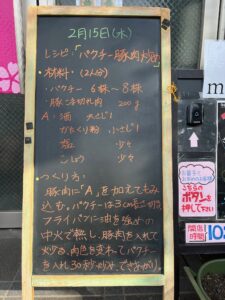 2月15日(水)
レシピ:「パクチー豚肉炒め」
・材料:(2人分)
パクチー 6株〜8株
豚こま切れ肉 200g
A:酒 大さじ1
かたくり粉 小さじ1
塩 少々
こしょう 少々
・つくり方:
豚肉に「A」を加えてもみ
込む。パクチーは3cm長さに切る。
フライパンに油を強めの
中火で熱し、豚肉を入れて
炒める。肉色を変わってパクチー
を入れ30秒炒め、できあがり。
m
お菓子と
こちらの
ボタンを
押して下さい
開店
時間
10